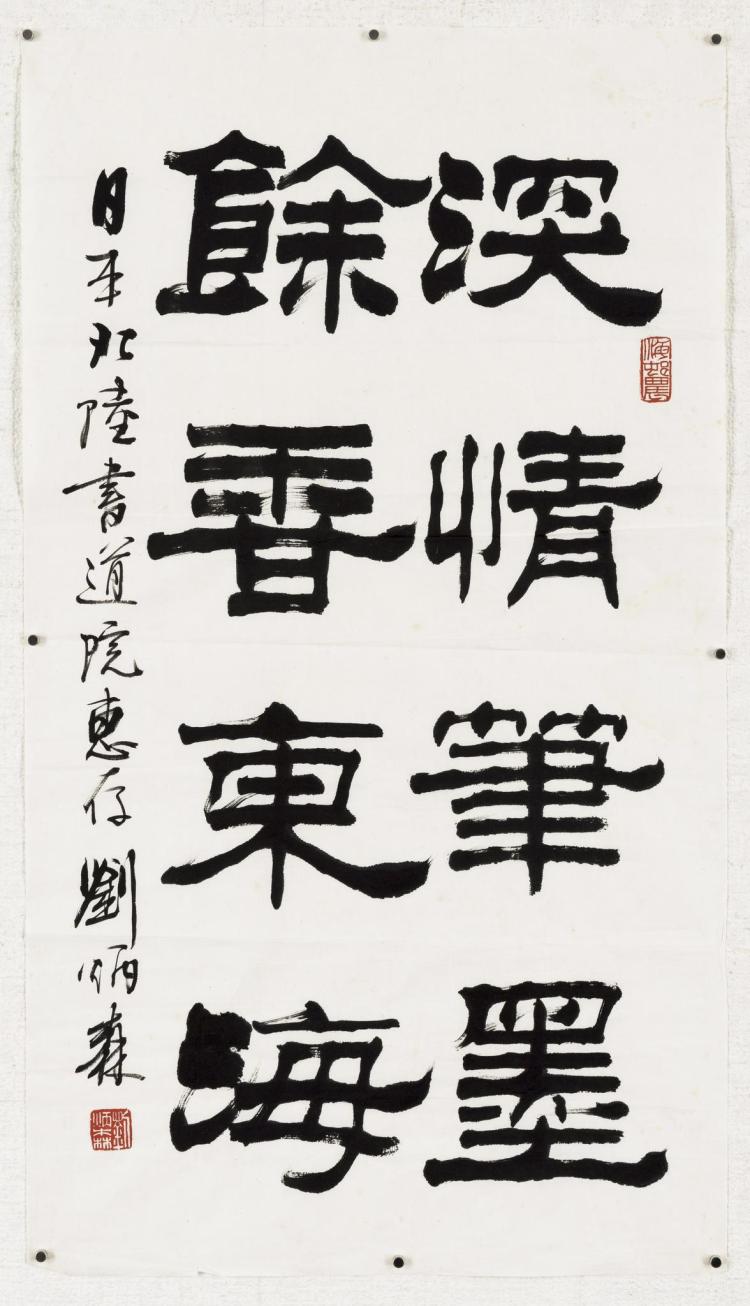 深情筆墨
餘香東海
日本北陸書道院惠存 劉炳森
劉炳森